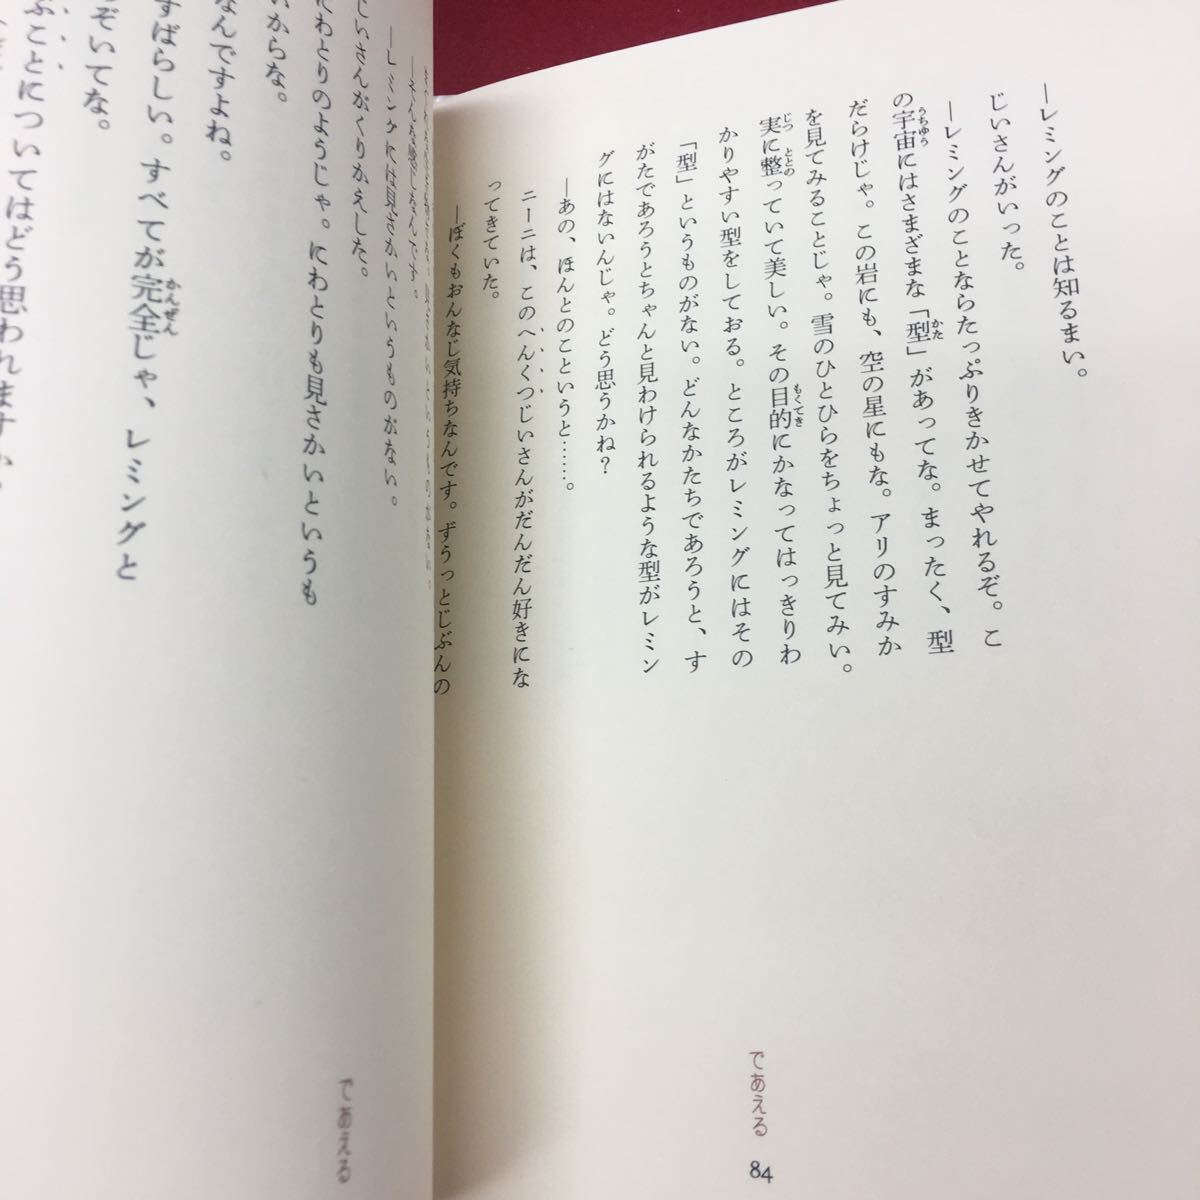 ―レミングのことは知るまい。
じいさんがいった。
―レミングのことならたっぷりきかせてやれるぞ。こ
の宇宙にはさまざまな「型」があってな。まったく、型
だらけじゃ。この岩にも、空の星にもな。アリのすみか
を見てみることじゃ。雪のひとひらをちょっと見てみい。
実に整っていて美しい。その目的にかなってはっきりわ
かりやすい型をしておる。ところがレミングにはその
「型」というものがない。どんなかたちであろうと、す
がたであろうとちゃんと見わけられるような型がレミン
グにはないんじゃ。どう思うかね？
―あの、ほんとのこというと……。
ニーニは、このへんくつじいさんがだんだん好きにな
ってきていた。
―ぼくもおんなじ気持ちなんです。ずうっとじぶんの
であえる 84
―そんな感じなんです。
―レミングには見さかいというものがない。
じいさんがくりかえした。
にわとりのようじゃ。にわとりも見さかいというも
いからな。
なんですよね。
すばらしい。すべてが完全じゃ、レミングと
ぞいてな。
ぶことについてはどう思われますか。
であえる